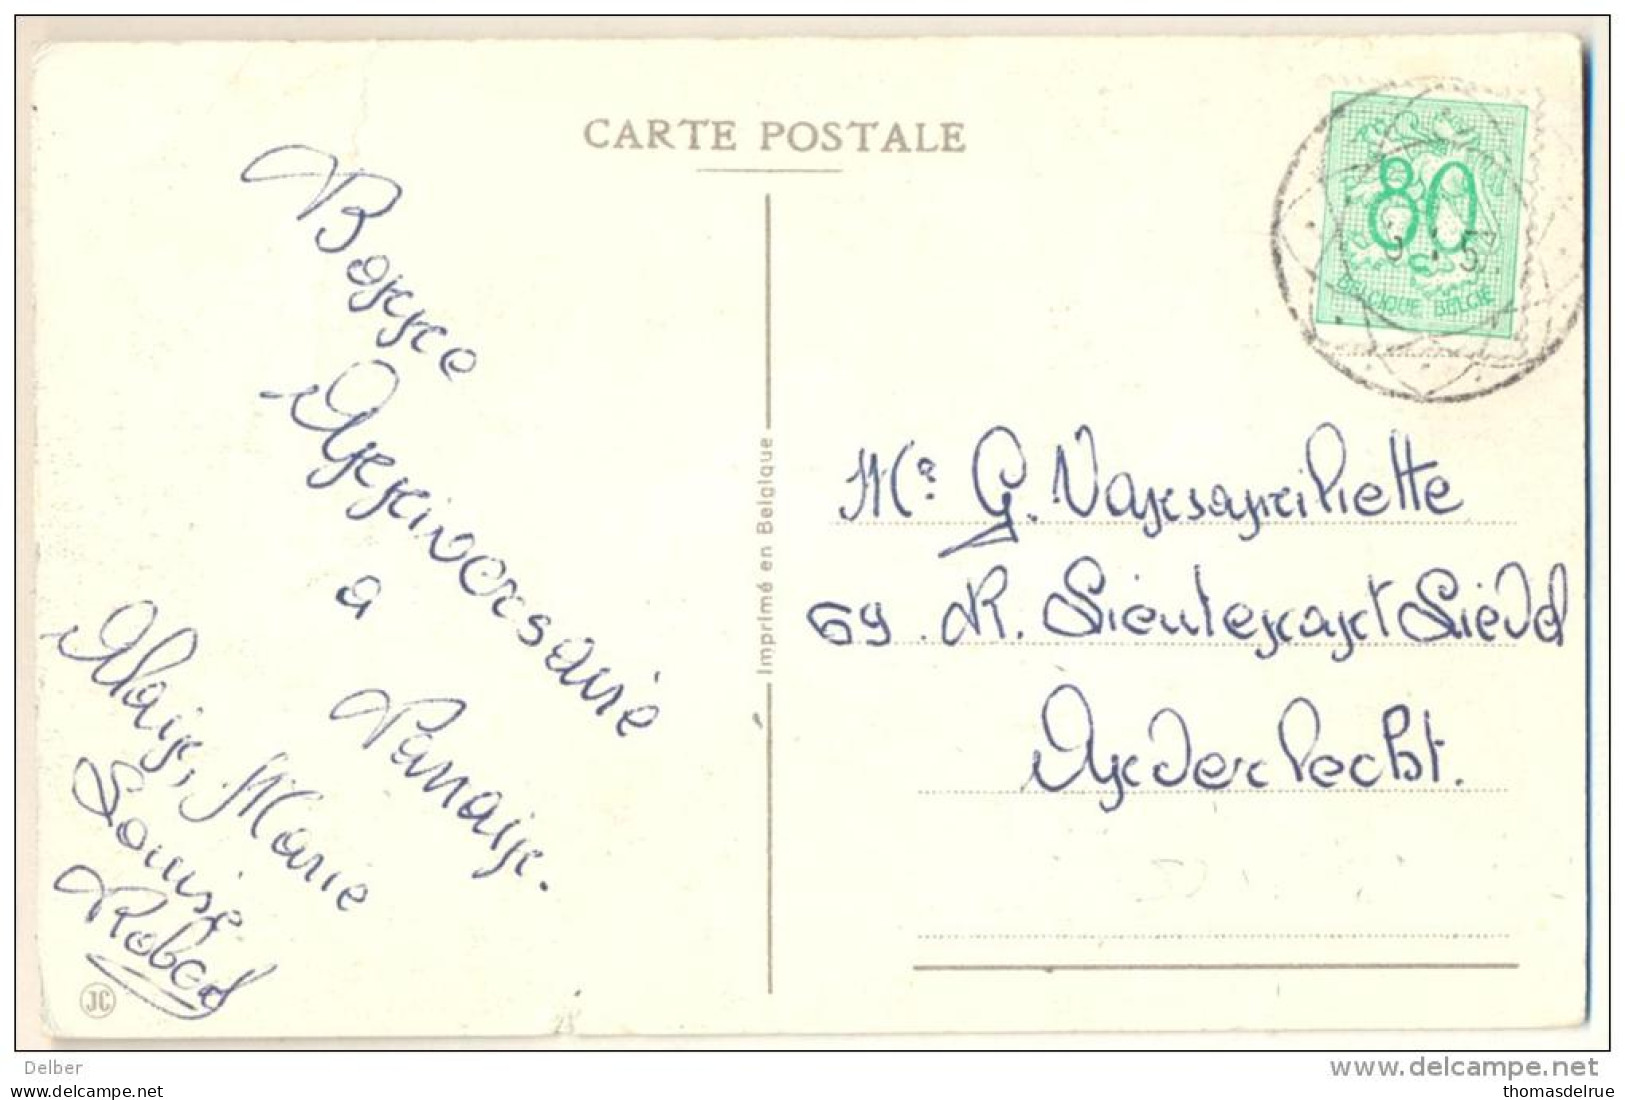 CARTE POSTALE
80
BELGIQUE BELGIË
Bonne
Anniversaire
a
Parrain.
Alain, Marie
Louise
Imprimé en Belgique
Mr G. Vansanpiliette
69. R. Lieutenant Liedel
Anderlecht.
JC
28
Delber
www.delcampe.net
marie
thomasdelrue